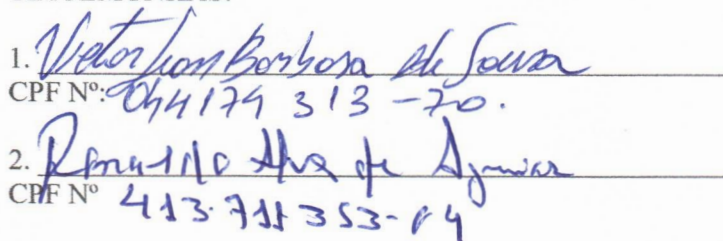 1. Victor Juan Barbosa de Sousa
CPF Nº: 044174 313-70.
2. Ronaldo Alva de Aguiar
CPF Nº 413.711353-04